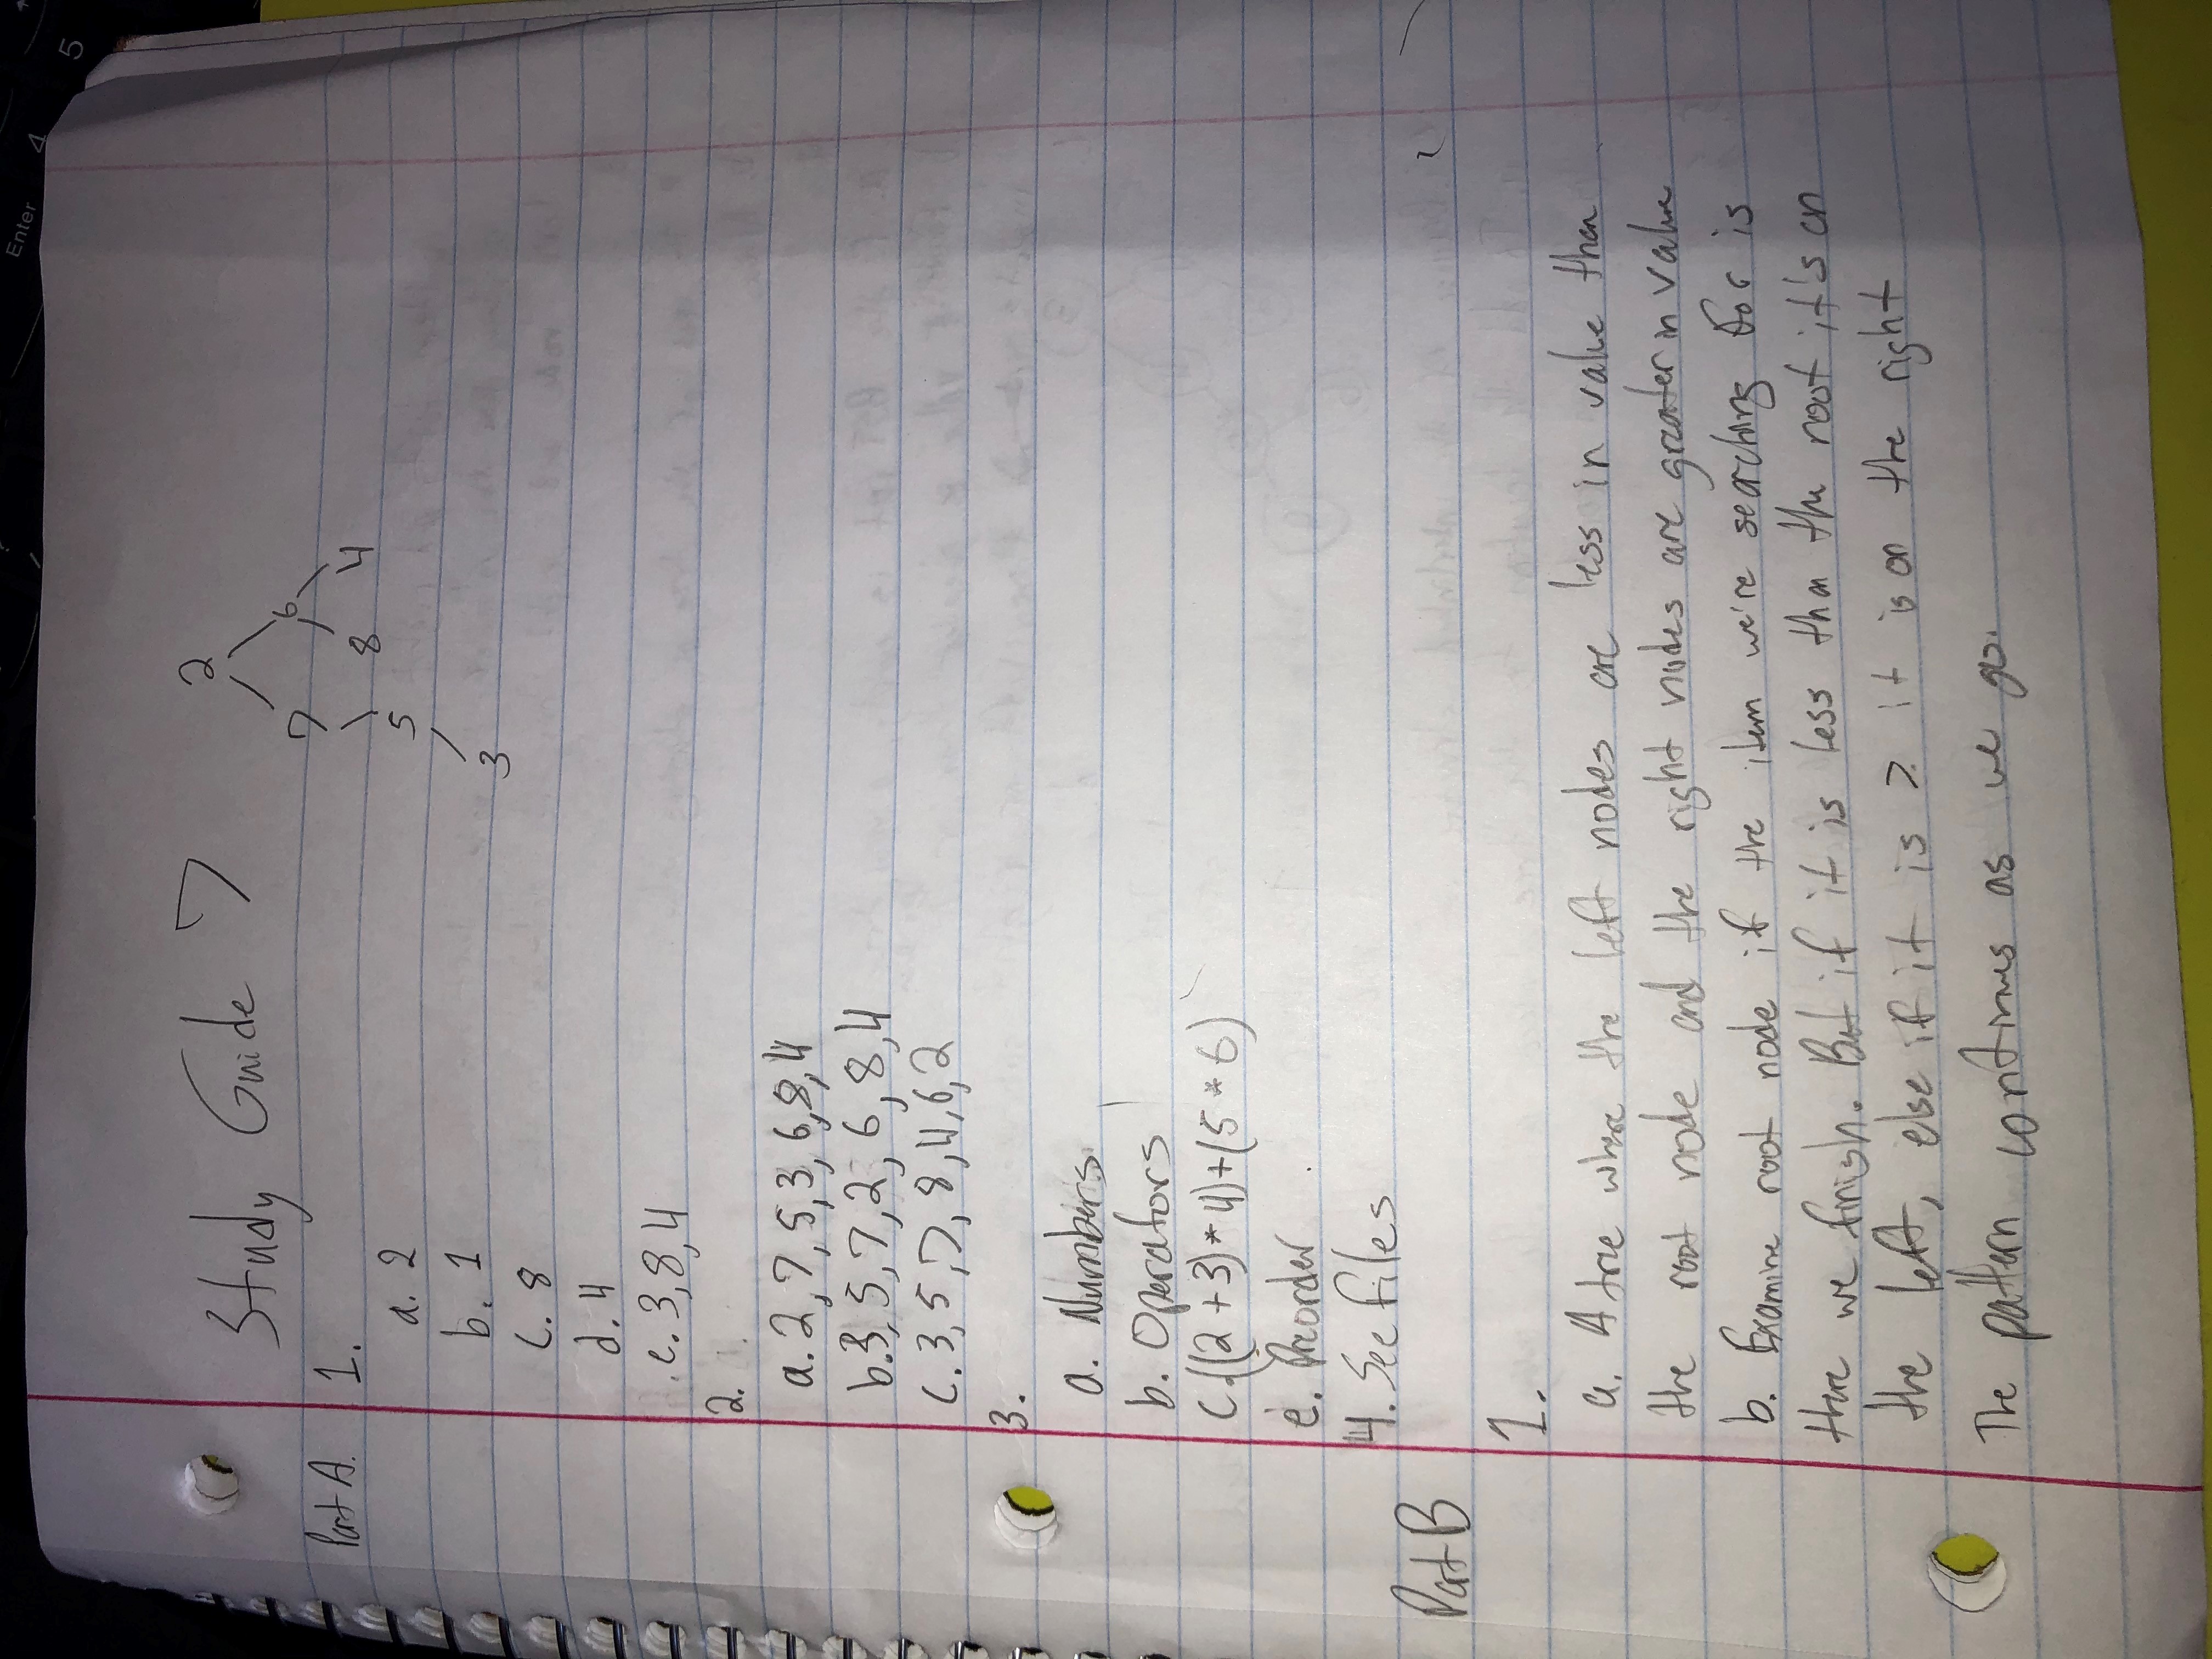 Study Guide 7
2
7 6
5 8 4
3
Part A. 1.
a. 2
b. 1
c. 8
d. 4
e. 3,8,4
2.
a. 2,7,5,3,6,8,4
b. 3,5,7,2,6,8,4
c. 3,5,7,8,4,6,2
3.
a. Numbers
b. Operators
c. ((2+3)*4)+(5*6)
e. Preorder
4. See files
Part B
1.
a. A tree where the left nodes are less in value than
the root node and the right nodes are greater in value
b. Examine root node if the item we're searching for is
there we finish. But if it is less than the root it's on
the left, else if it is > it is on the right
The pattern continues as we go.
Enter
4
5